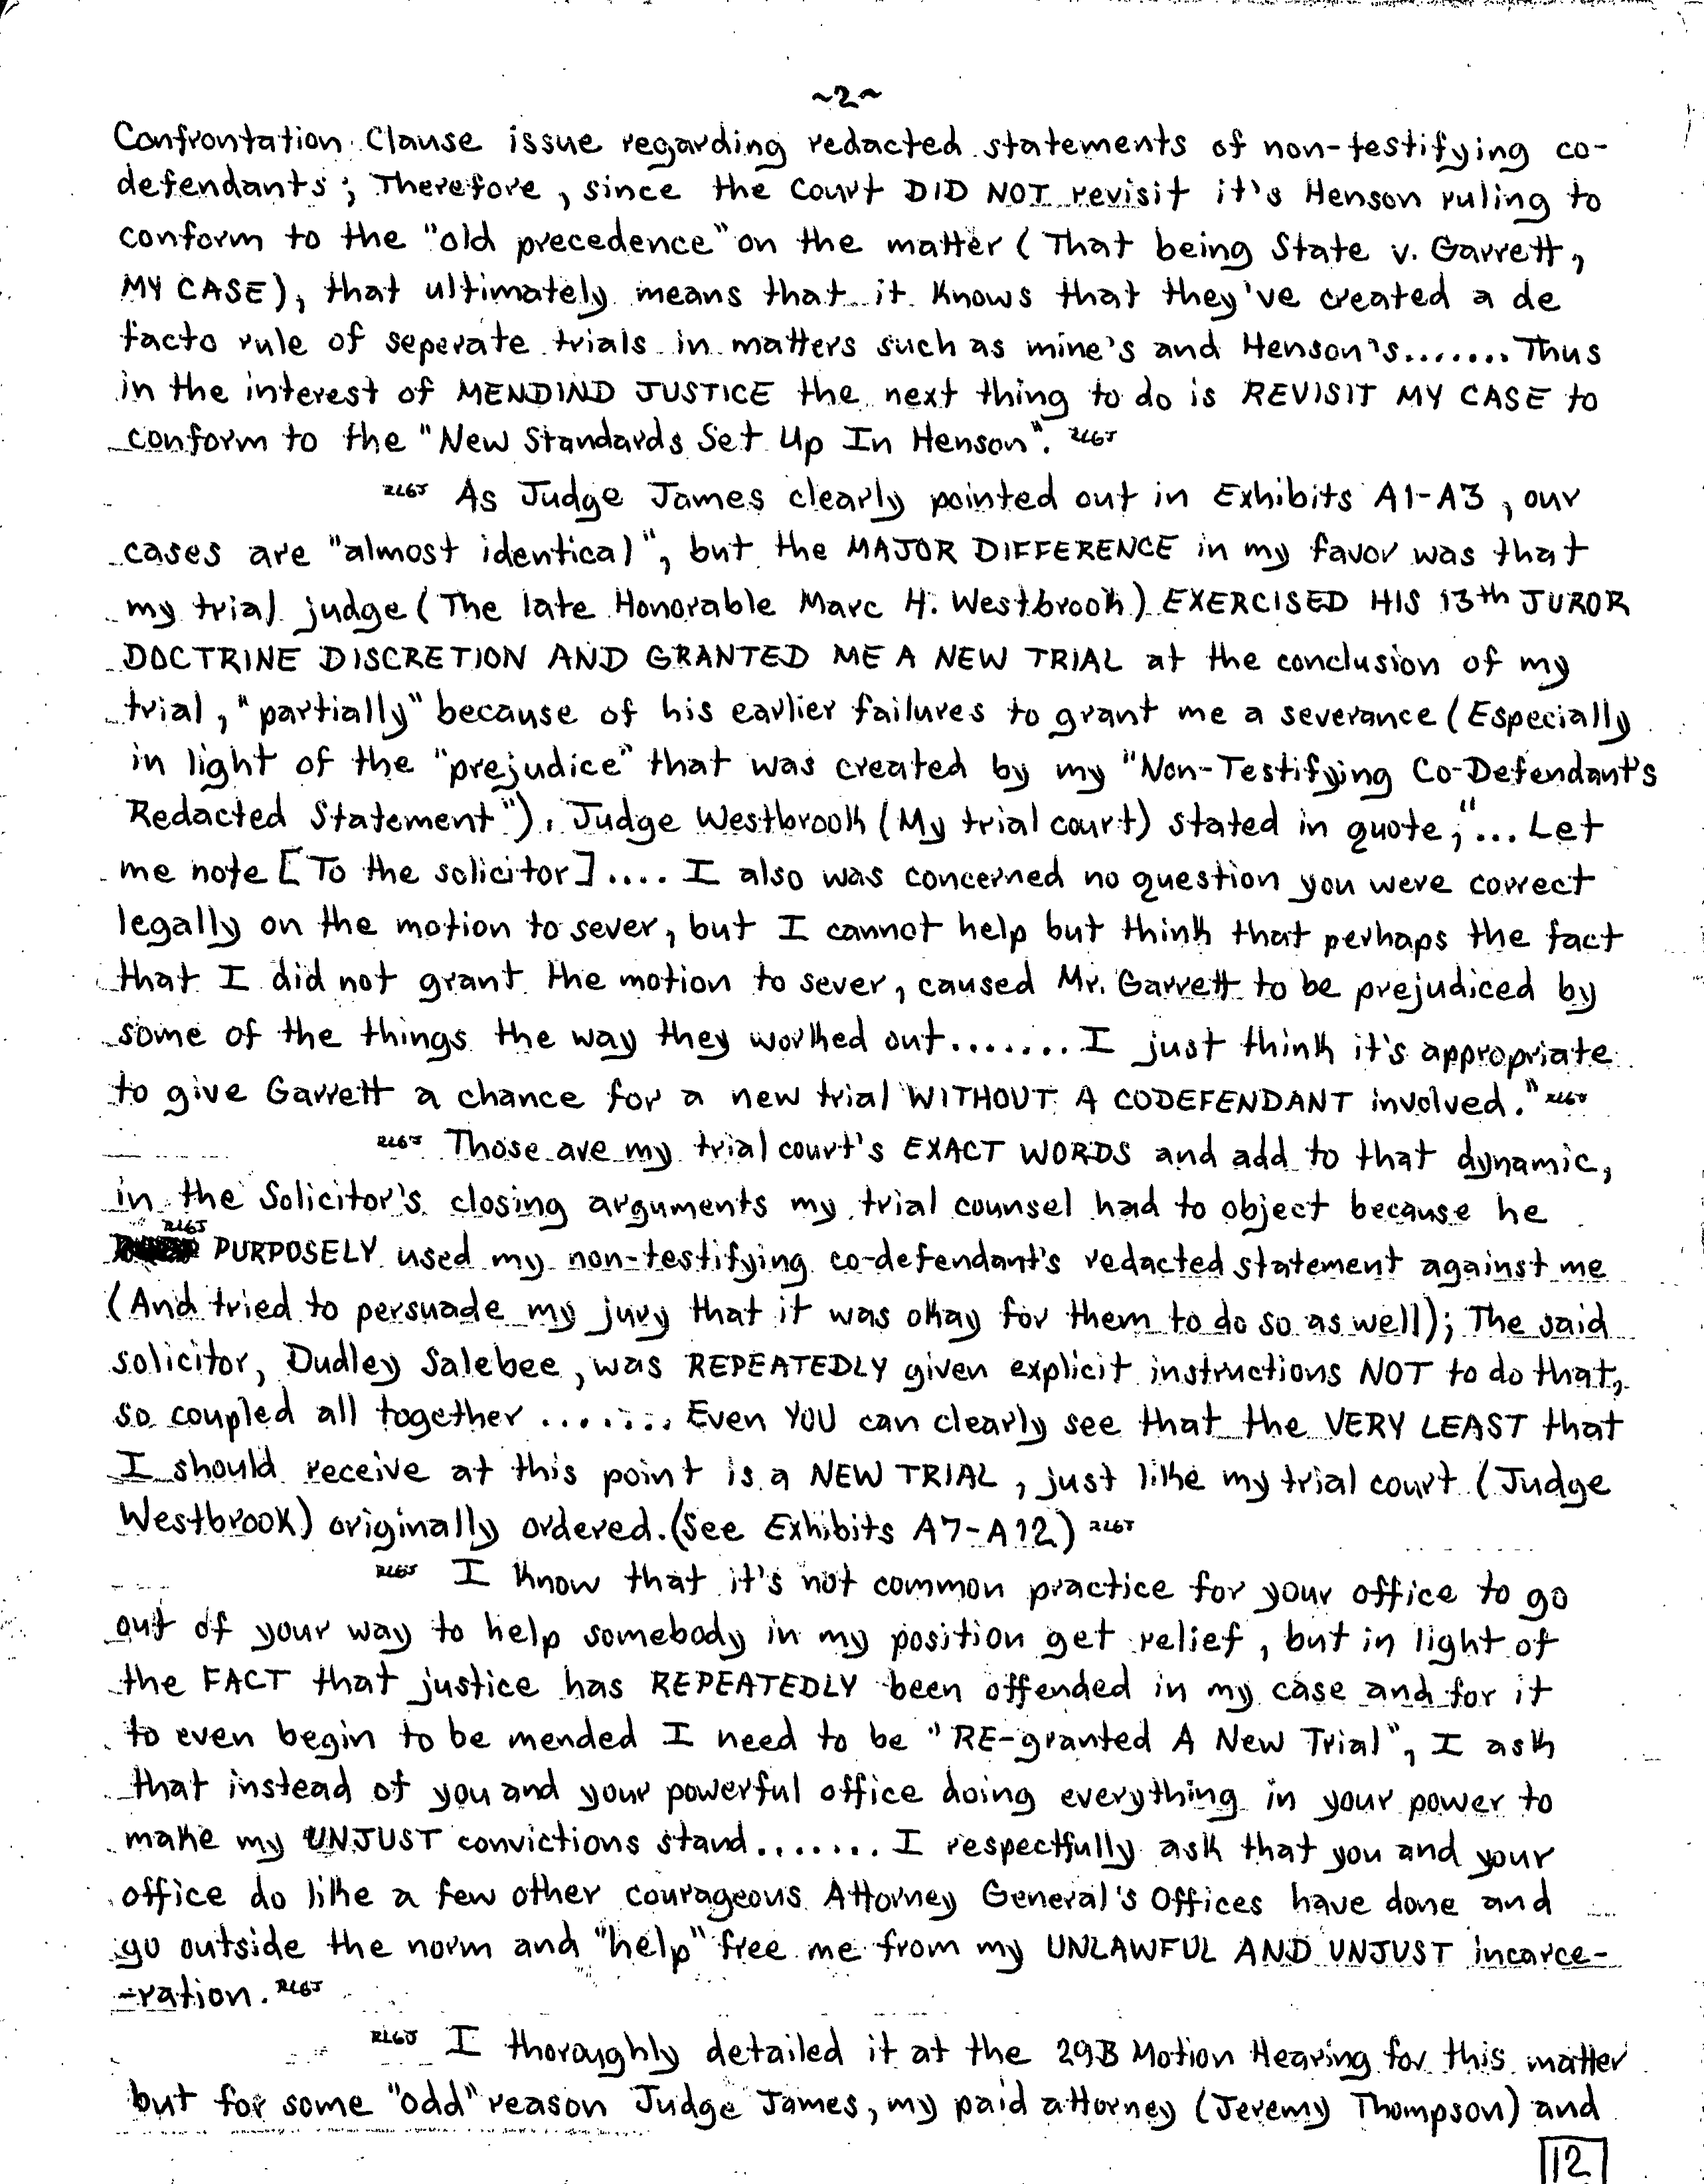 ~2~
Confrontation Clause issue regarding redacted statements of non-testifying co-
defendants; Therefore, since the Court DID NOT revisit it's Henson ruling to
conform to the "old precedence" on the matter (That being State v. Garrett,
MY CASE), that ultimately means that it knows that they've created a de
facto rule of seperate trials in matters such as mine's and Henson's....... Thus
in the interest of MENDIND JUSTICE the next thing to do is REVISIT MY CASE to
conform to the "New Standards Set Up In Henson". RLGJ
RLGJ As Judge James clearly pointed out in Exhibits A1-A3, our
cases are "almost identical", but the MAJOR DIFFERENCE in my favor was that
my trial judge (The late Honorable Marc H. Westbrook) EXERCISED HIS 13th JUROR
DOCTRINE DISCRETION AND GRANTED ME A NEW TRIAL at the conclusion of my
trial, "partially" because of his earlier failures to grant me a severance (Especially
in light of the "prejudice" that was created by my "Non-Testifying Co-Defendant's
Redacted Statement"). Judge Westbrook (My trial court) stated in quote; "... Let
me note [To the solicitor].... I also was concerned no question you were correct
legally on the motion to sever, but I cannot help but think that perhaps the fact
that I did not grant the motion to sever, caused Mr. Garrett to be prejudiced by
some of the things the way they worked out....... I just think it's appropriate
to give Garrett a chance for a new trial WITHOUT A CODEFENDANT involved." RLGJ
RLGJ Those are my trial court's EXACT WORDS and add to that dynamic,
in the Solicitor's closing arguments my trial counsel had to object because he
RLGJ
PURPOSELY used my non-testifying co-defendant's redacted statement against me
(And tried to persuade my jury that it was okay for them to do so as well); The said
solicitor, Dudley Salebee, was REPEATEDLY given explicit instructions NOT to do that,
so coupled all together ....... Even YOU can clearly see that the VERY LEAST that
I should receive at this point is a NEW TRIAL, just like my trial court (Judge
Westbrook) originally ordered. (See Exhibits A7-A12) RLGJ
RLGJ I know that it's not common practice for your office to go
out of your way to help somebody in my position get relief, but in light of
the FACT that justice has REPEATEDLY been offended in my case and for it
to even begin to be mended I need to be "RE-granted A New Trial", I ask
that instead of you and your powerful office doing everything in your power to
make my UNJUST convictions stand....... I respectfully ask that you and your
office do like a few other courageous Attorney General's Offices have done and
go outside the norm and "help" free me from my UNLAWFUL AND UNJUST incarce-
-ration. RLGJ
RLGJ I thoroughly detailed it at the 29B Motion Hearing for this matter
but for some "odd" reason Judge James, my paid attorney (Jeremy Thompson) and
12